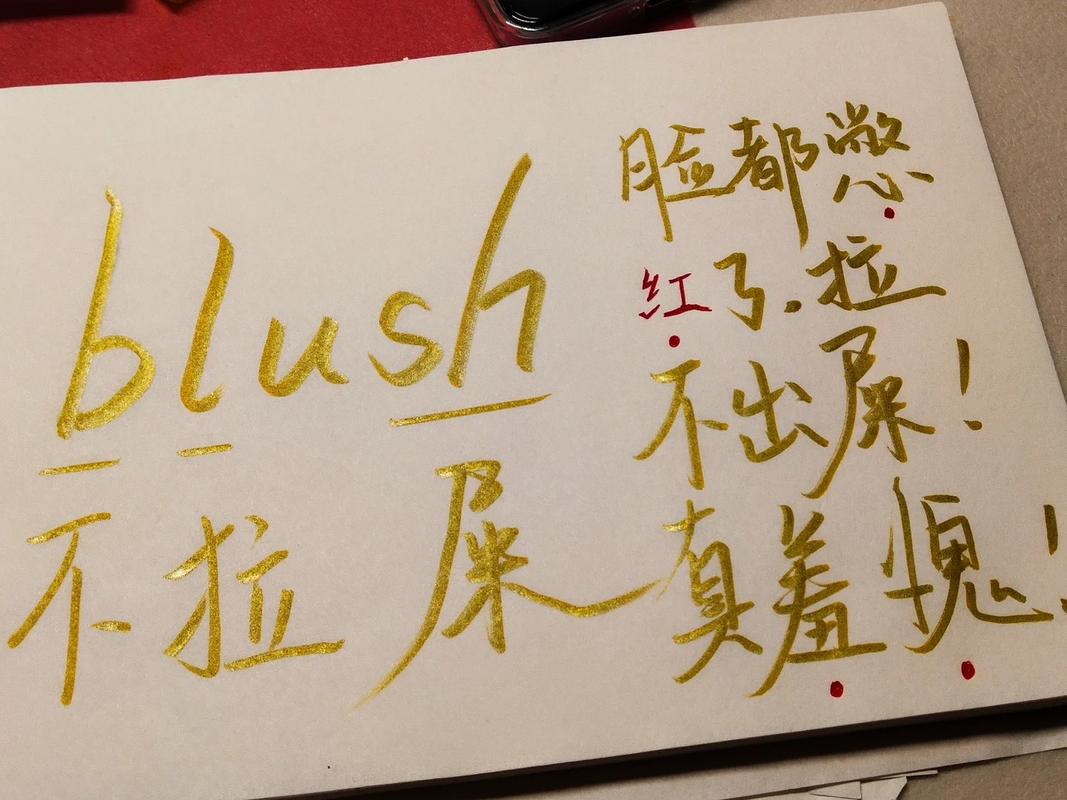 blush
不拉屎
脸都憋
红了，拉
不出屎！
真羞愧！